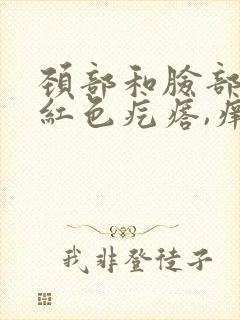 頸部和臉部
紅色疙瘩,癢
我非登徒子